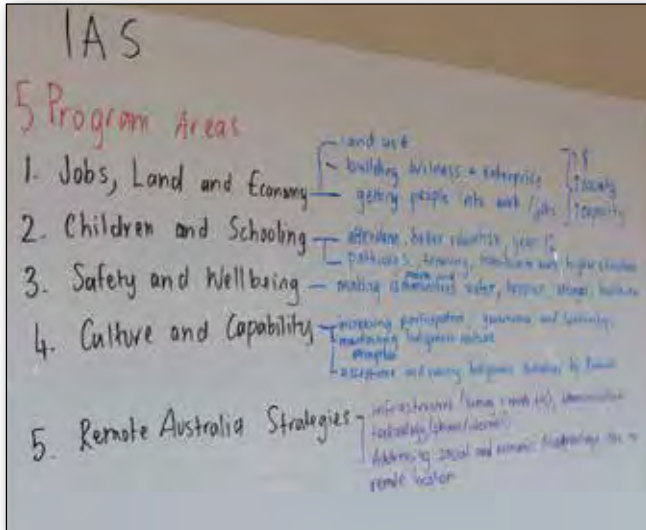 IAS
5 Program Areas
1. Jobs, Land and Economy
land use
building business + enterprise
getting people into work / jobs
2. Children and Schooling
attendance, better education, year 12
pathways, training, higher education
3. Safety and Wellbeing
making communities safer, happier,
4. Culture and Capability
increasing participation, governance and
maintaining Indigenous culture
acceptance and Indigenous
5. Remote Australia Strategies
infrastructure
technology (phone/internet)
Addressing social and economic disadvantage due to
remote location